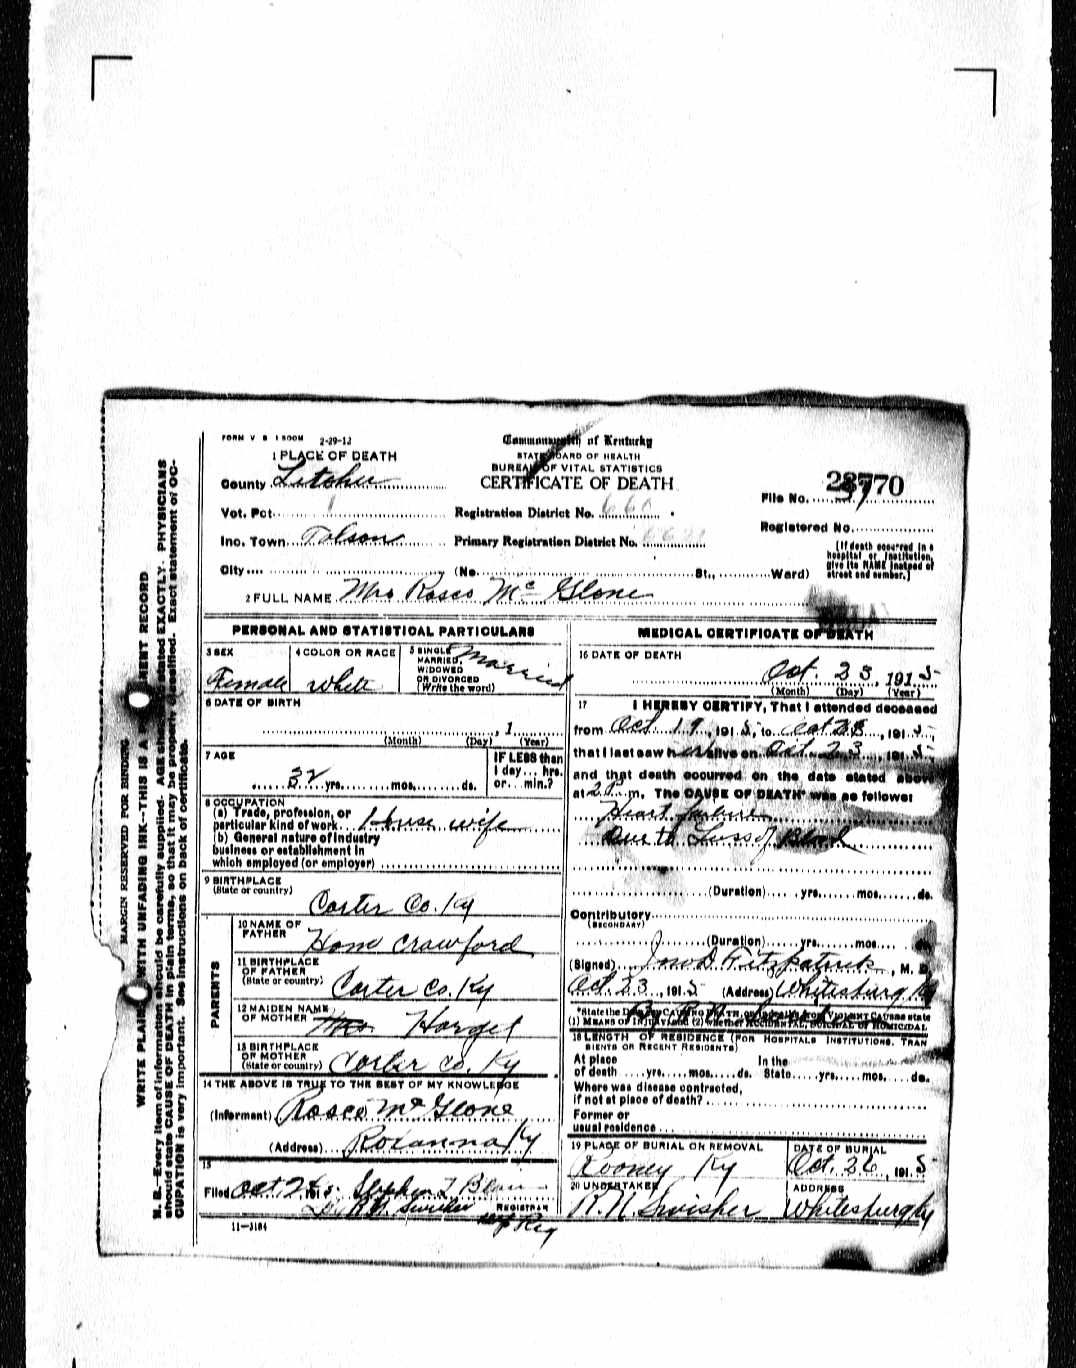 FORM V S 1 500M 2-29-12
1 PLACE OF DEATH
County Letcher
Vot. Pct.
Inc. Town Tolson
City
Commonwealth of Kentucky
STATE BOARD OF HEALTH
BUREAU OF VITAL STATISTICS
CERTIFICATE OF DEATH
Registration District No. 660
Primary Registration District No.
(No. St., Ward)
File No. 23770
Registered No.
(If death occurred in a
hospital or institution,
give its NAME instead of
street and number.)
2 FULL NAME Mrs Rosco McGlone
PERSONAL AND STATISTICAL PARTICULARS
3 SEX
Female
4 COLOR OR RACE
White
5 SINGLE
MARRIED,
WIDOWED
OR DIVORCED
(Write the word)
Married
6 DATE OF BIRTH
, 1
(Month) (Day) (Year)
7 AGE
32 yrs. mos. ds.
IF LESS than
1 day... hrs.
or... min.?
8 OCCUPATION
(a) Trade, profession, or
particular kind of work House wife
(b) General nature of industry
business or establishment in
which employed (or employer)
9 BIRTHPLACE
(State or country)
Carter Co. Ky
PARENTS
10 NAME OF
FATHER
Crawford
11 BIRTHPLACE
OF FATHER
(State or country)
Carter Co. Ky
12 MAIDEN NAME
OF MOTHER
13 BIRTHPLACE
OF MOTHER
(State or country)
Carter Co. Ky
14 THE ABOVE IS TRUE TO THE BEST OF MY KNOWLEDGE
(Informant) Rosco McGlone
(Address) Roxanna Ky
15
Filed Oct 191
R.N. Swisher REGISTRAR
Reg
11-3184
MEDICAL CERTIFICATE OF DEATH
16 DATE OF DEATH
Oct. 23, 1915
(Month) (Day) (Year)
17 I HEREBY CERTIFY, That I attended deceased
from Oct 19, 1915, to Oct 23, 1915,
that I last saw her alive on Oct 23, 1915,
and that death occurred on the date stated above
at 2 P. m. The CAUSE OF DEATH* was as follows:
Heart failure
Due to Loss of Blood
(Duration) yrs. mos. ds.
Contributory
(SECONDARY)
(Duration) yrs. mos.
(Signed) Jno D Fitzpatrick, M. D.
Oct 23, 1915 (Address) Whitesburg Ky
*State the DISEASE CAUSING DEATH, or, in deaths from VIOLENT CAUSES state
(1) MEANS OF INJURY; and (2) whether ACCIDENTAL, SUICIDAL or HOMICIDAL
18 LENGTH OF RESIDENCE (FOR HOSPITALS INSTITUTIONS, TRAN
SIENTS OR RECENT RESIDENTS)
At place
of death yrs. mos. ds.
In the
State yrs. mos. ds.
Where was disease contracted,
if not at place of death?
Former or
usual residence
19 PLACE OF BURIAL OR REMOVAL
Rooney Ky
DATE OF BURIAL
Oct. 26, 1915
20 UNDERTAKER
R.N. Swisher
ADDRESS
Whitesburg Ky
MARGIN RESERVED FOR BINDING
WRITE PLAINLY WITH UNFADING INK—THIS IS A PERMANENT RECORD
N. B.—Every item of information should be carefully supplied. AGE should be stated EXACTLY. PHYSICIANS
should state CAUSE OF DEATH in plain terms, so that it may be properly classified. Exact statement of OC-
CUPATION is very important. See instructions on back of certificate.